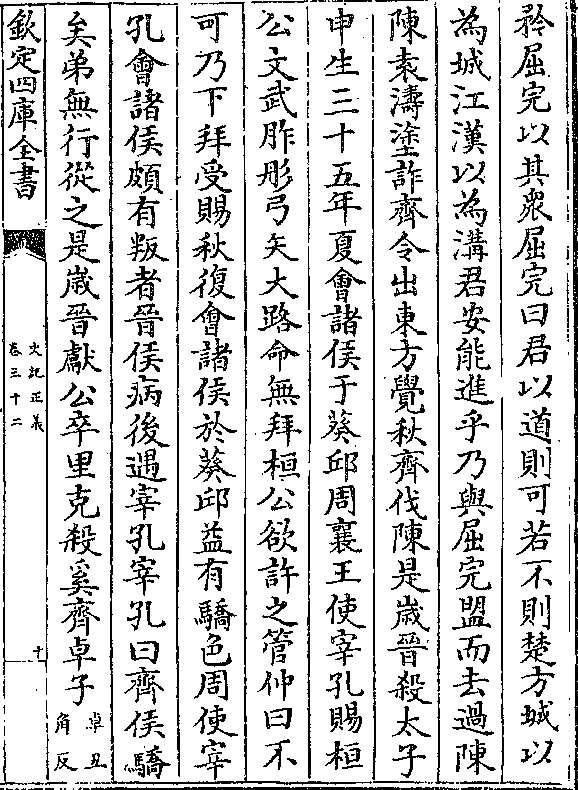 矜屈完以其衆屈完曰君以道則可若不則楚方城以
為城江漢以為溝君安能進乎乃與屈完盟而去過陳
陳袁濤塗詐齊令出東方覺秋齊伐陳是嵗晉殺太子
申生三十五年夏會諸侯于葵邱周襄王使宰孔賜桓
公文武胙彤弓矢大路命無拜桓公欲許之管仲曰不
可乃下拜受賜秋復會諸侯於葵邱益有驕色周使宰
孔會諸侯頗有叛者晉侯病後遇宰孔宰孔曰齊侯驕
矣弟無行從之是嵗晉獻公卒里克殺奚齊卓子
卓丑
角反
欽定四庫全書
史記正義
卷三十二
十